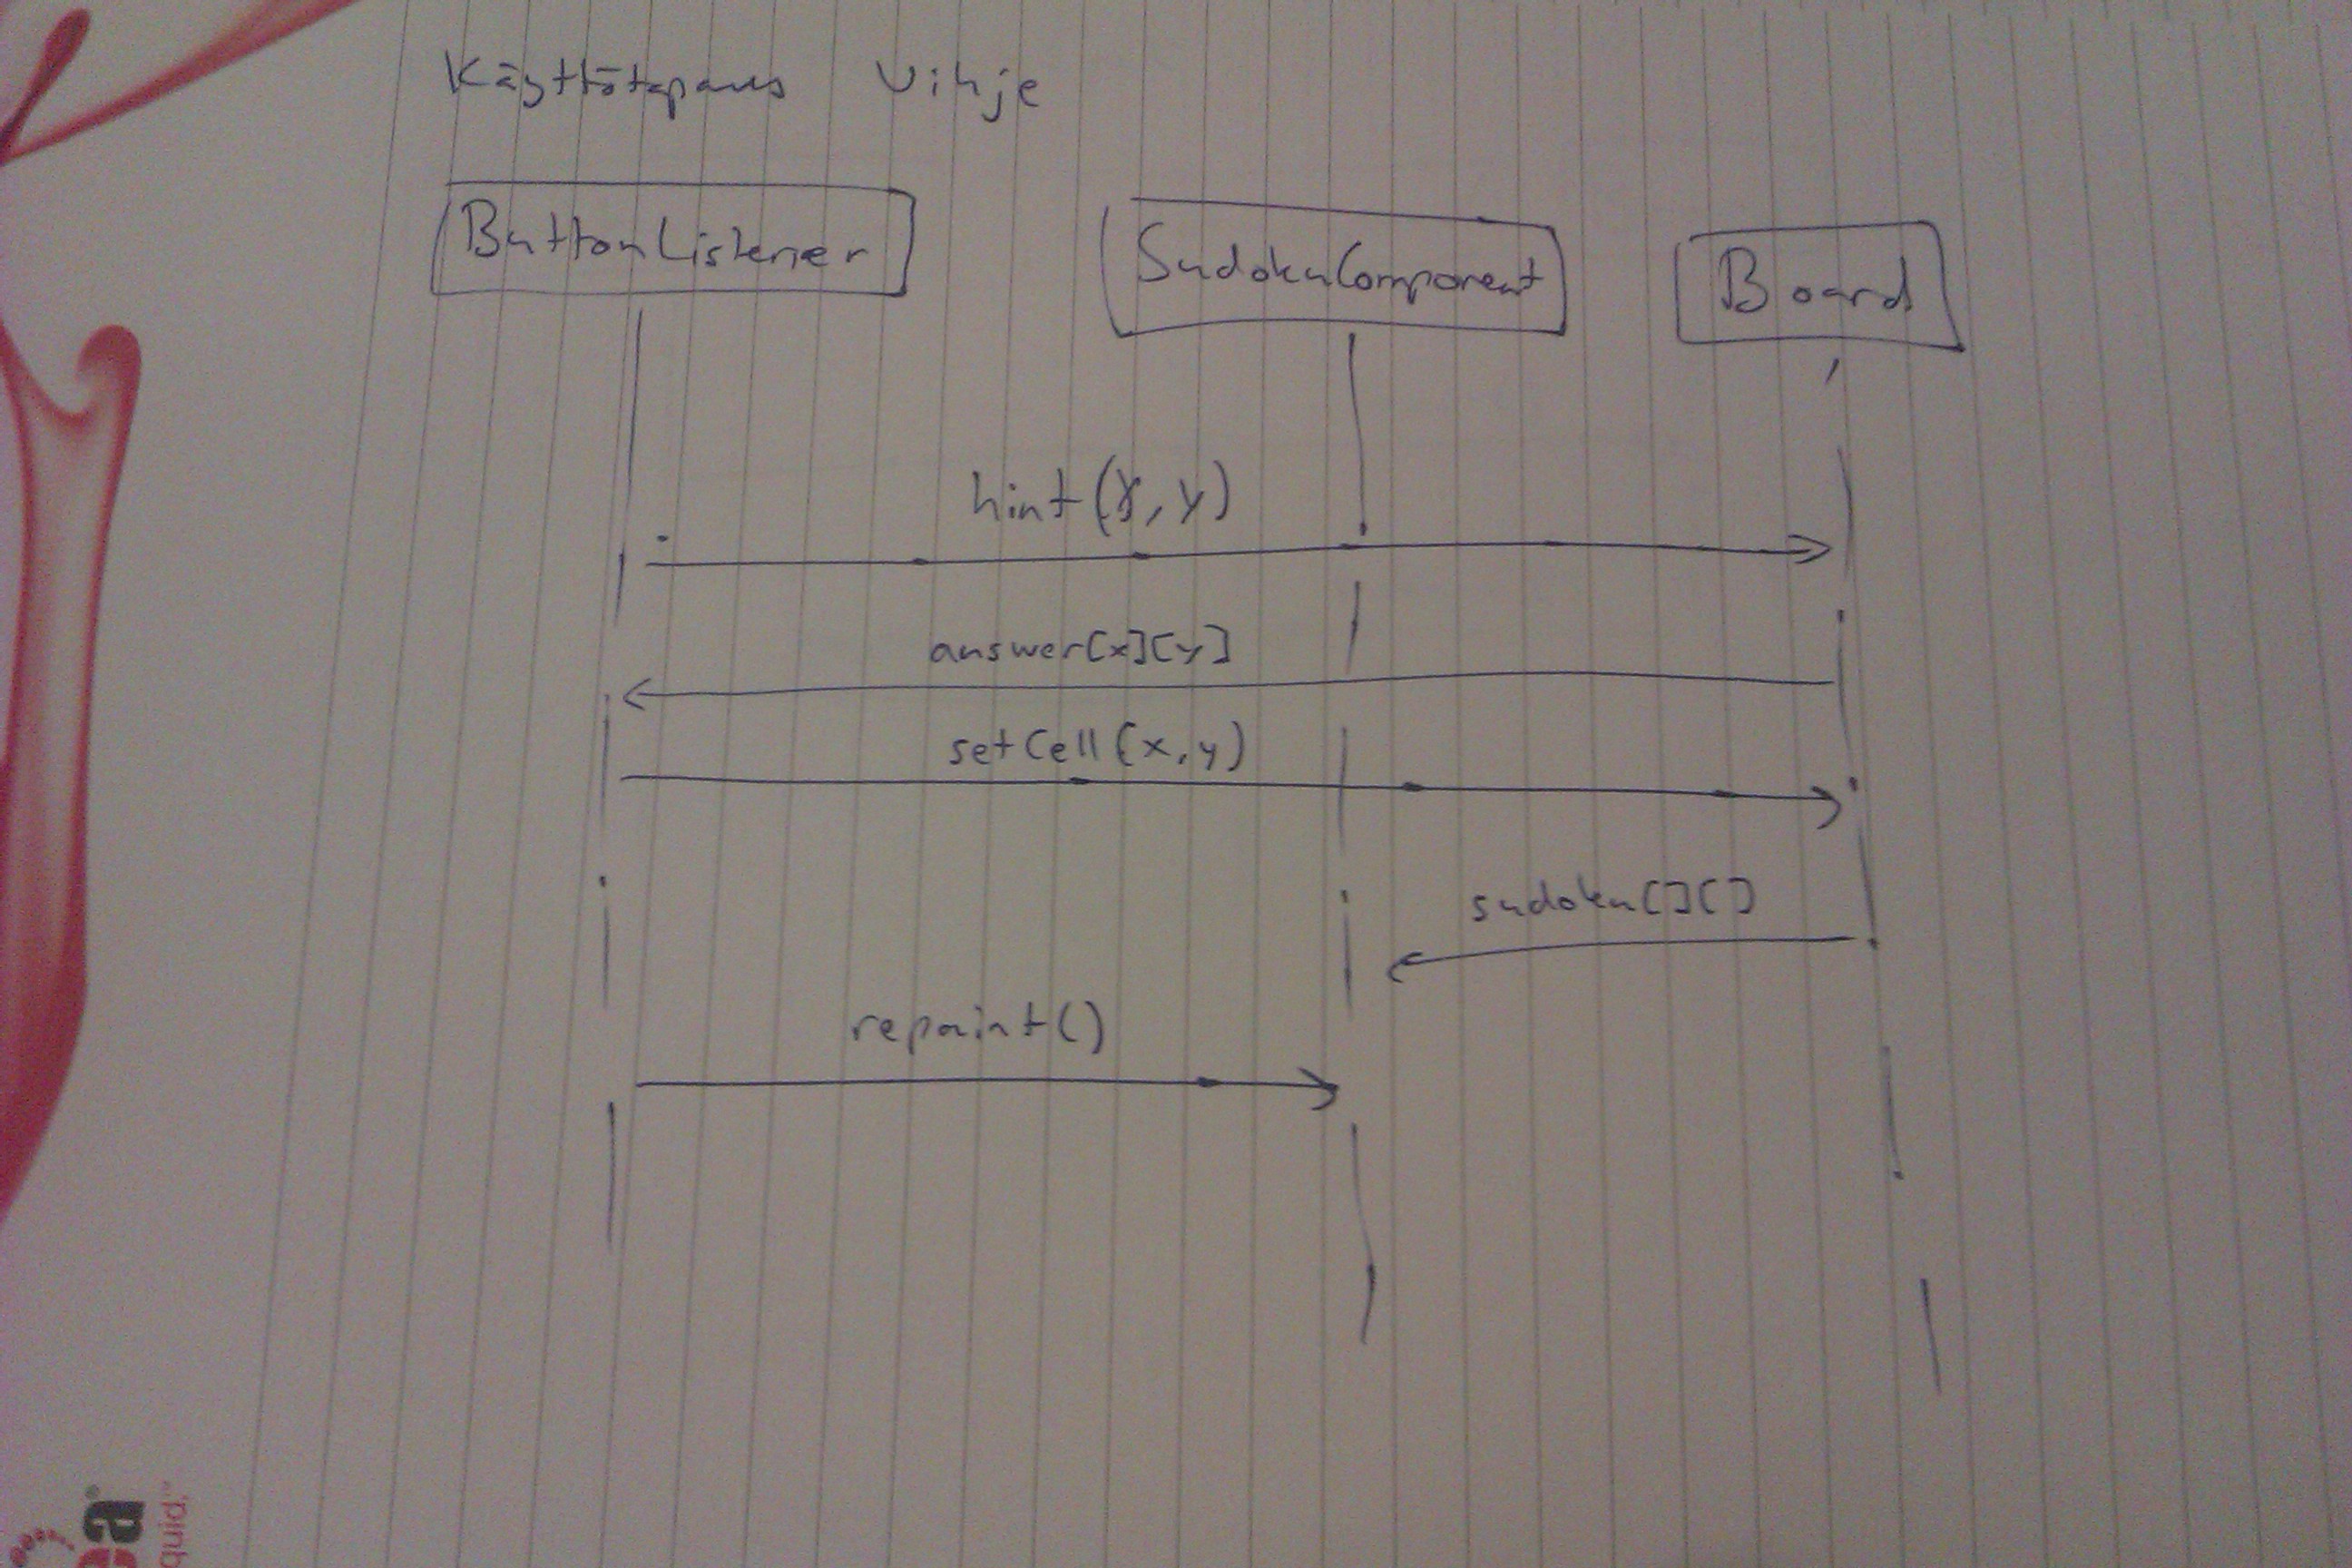 Käyttötapaus Vihje
ButtonListener
SudokuComponent
Board
hint(x,y)
answer[x][y]
setCell(x,y)
sudoku[][]
repaint()
quid.